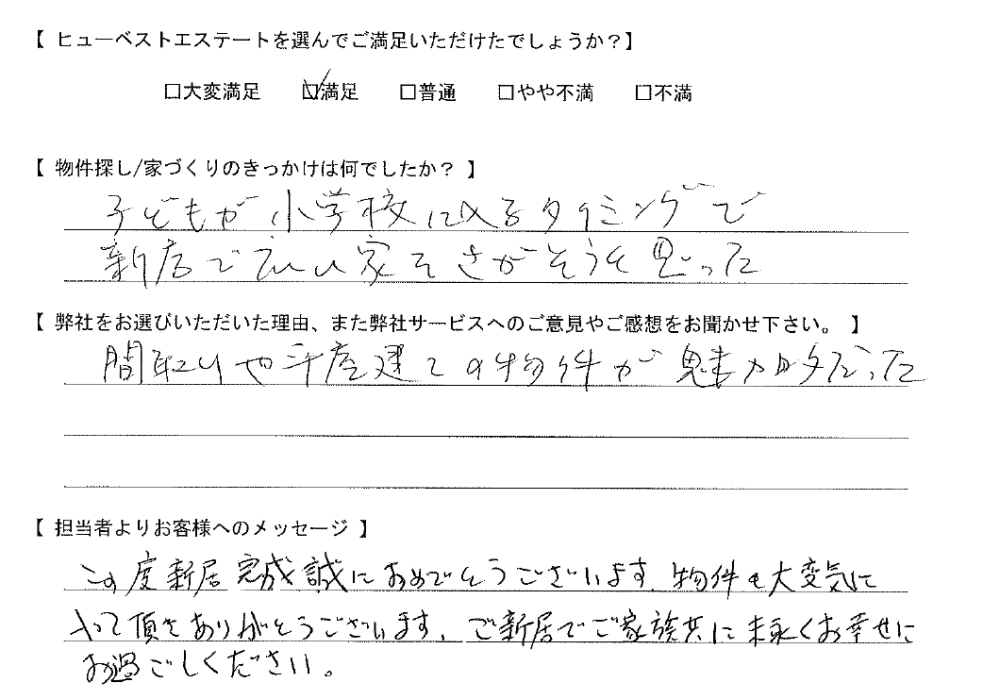 【 ヒューベストエステートを選んでご満足いただけたでしょうか？】
□大変満足 ☑満足 □普通 □やや不満 □不満
【 物件探し/家づくりのきっかけは何でしたか？ 】
子どもが小学校に入るタイミングで
新居で広い家をさがそうと思った
【 弊社をお選びいただいた理由、また弊社サービスへのご意見やご感想をお聞かせ下さい。 】
間取りや平屋建ての物件が魅力的だった
【 担当者よりお客様へのメッセージ 】
この度新居完成誠におめでとうございます。物件も大変気に
入って頂きありがとうございます。ご新居でご家族共に末永くお幸せに
お過ごしください。